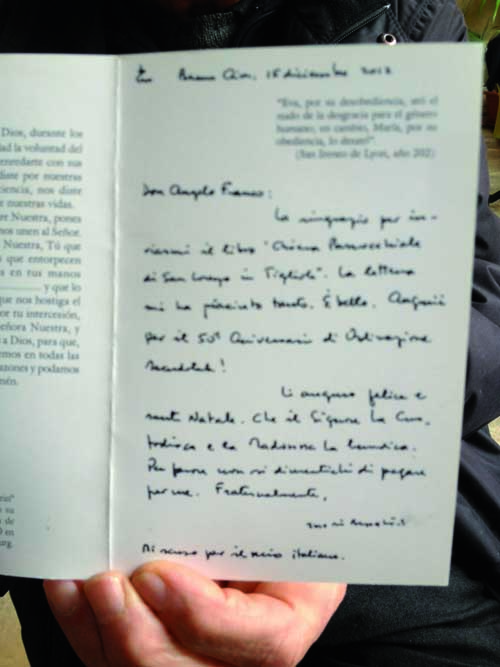 Dios, durante los
dad la voluntad del
enredarte con sus
diste por nuestras
ciencia, nos diste
e nuestras vidas.
re Nuestra, pones
nos unen al Señor.
Nuestra, Tú que
que entorpecen
s en tus manos
y que lo
que nos hostiga el
or tu intercesión,
eñora Nuestra, y
a Dios, para que,
emos en todas las
azones y podamos
mén.
Buenos Aires, 15 diciembre 2012
"Eva, por su desobediencia, ató el
nudo de la desgracia para el género
humano; en cambio, María, por su
obediencia, lo desató".
(San Ireneo de Lyon, año 202)
Don Angelo Franco:
La ringrazio per in-
viarmi il libro "Chiesa Parrocchiale
di San Lorenzo in Tigliole". La lettura
mi ha piaciuto tanto. È bello. Auguri
per il 50° Aniversario di Ordinazione
Sacerdotale!
Li auguro felice e
santo Natale. Che il Signore La Cus-
todisca e la Madonna La benedica.
Per favore non si dimentichi di pregare
per me. Fraternalmente,
Mi scuso per il mio italiano.